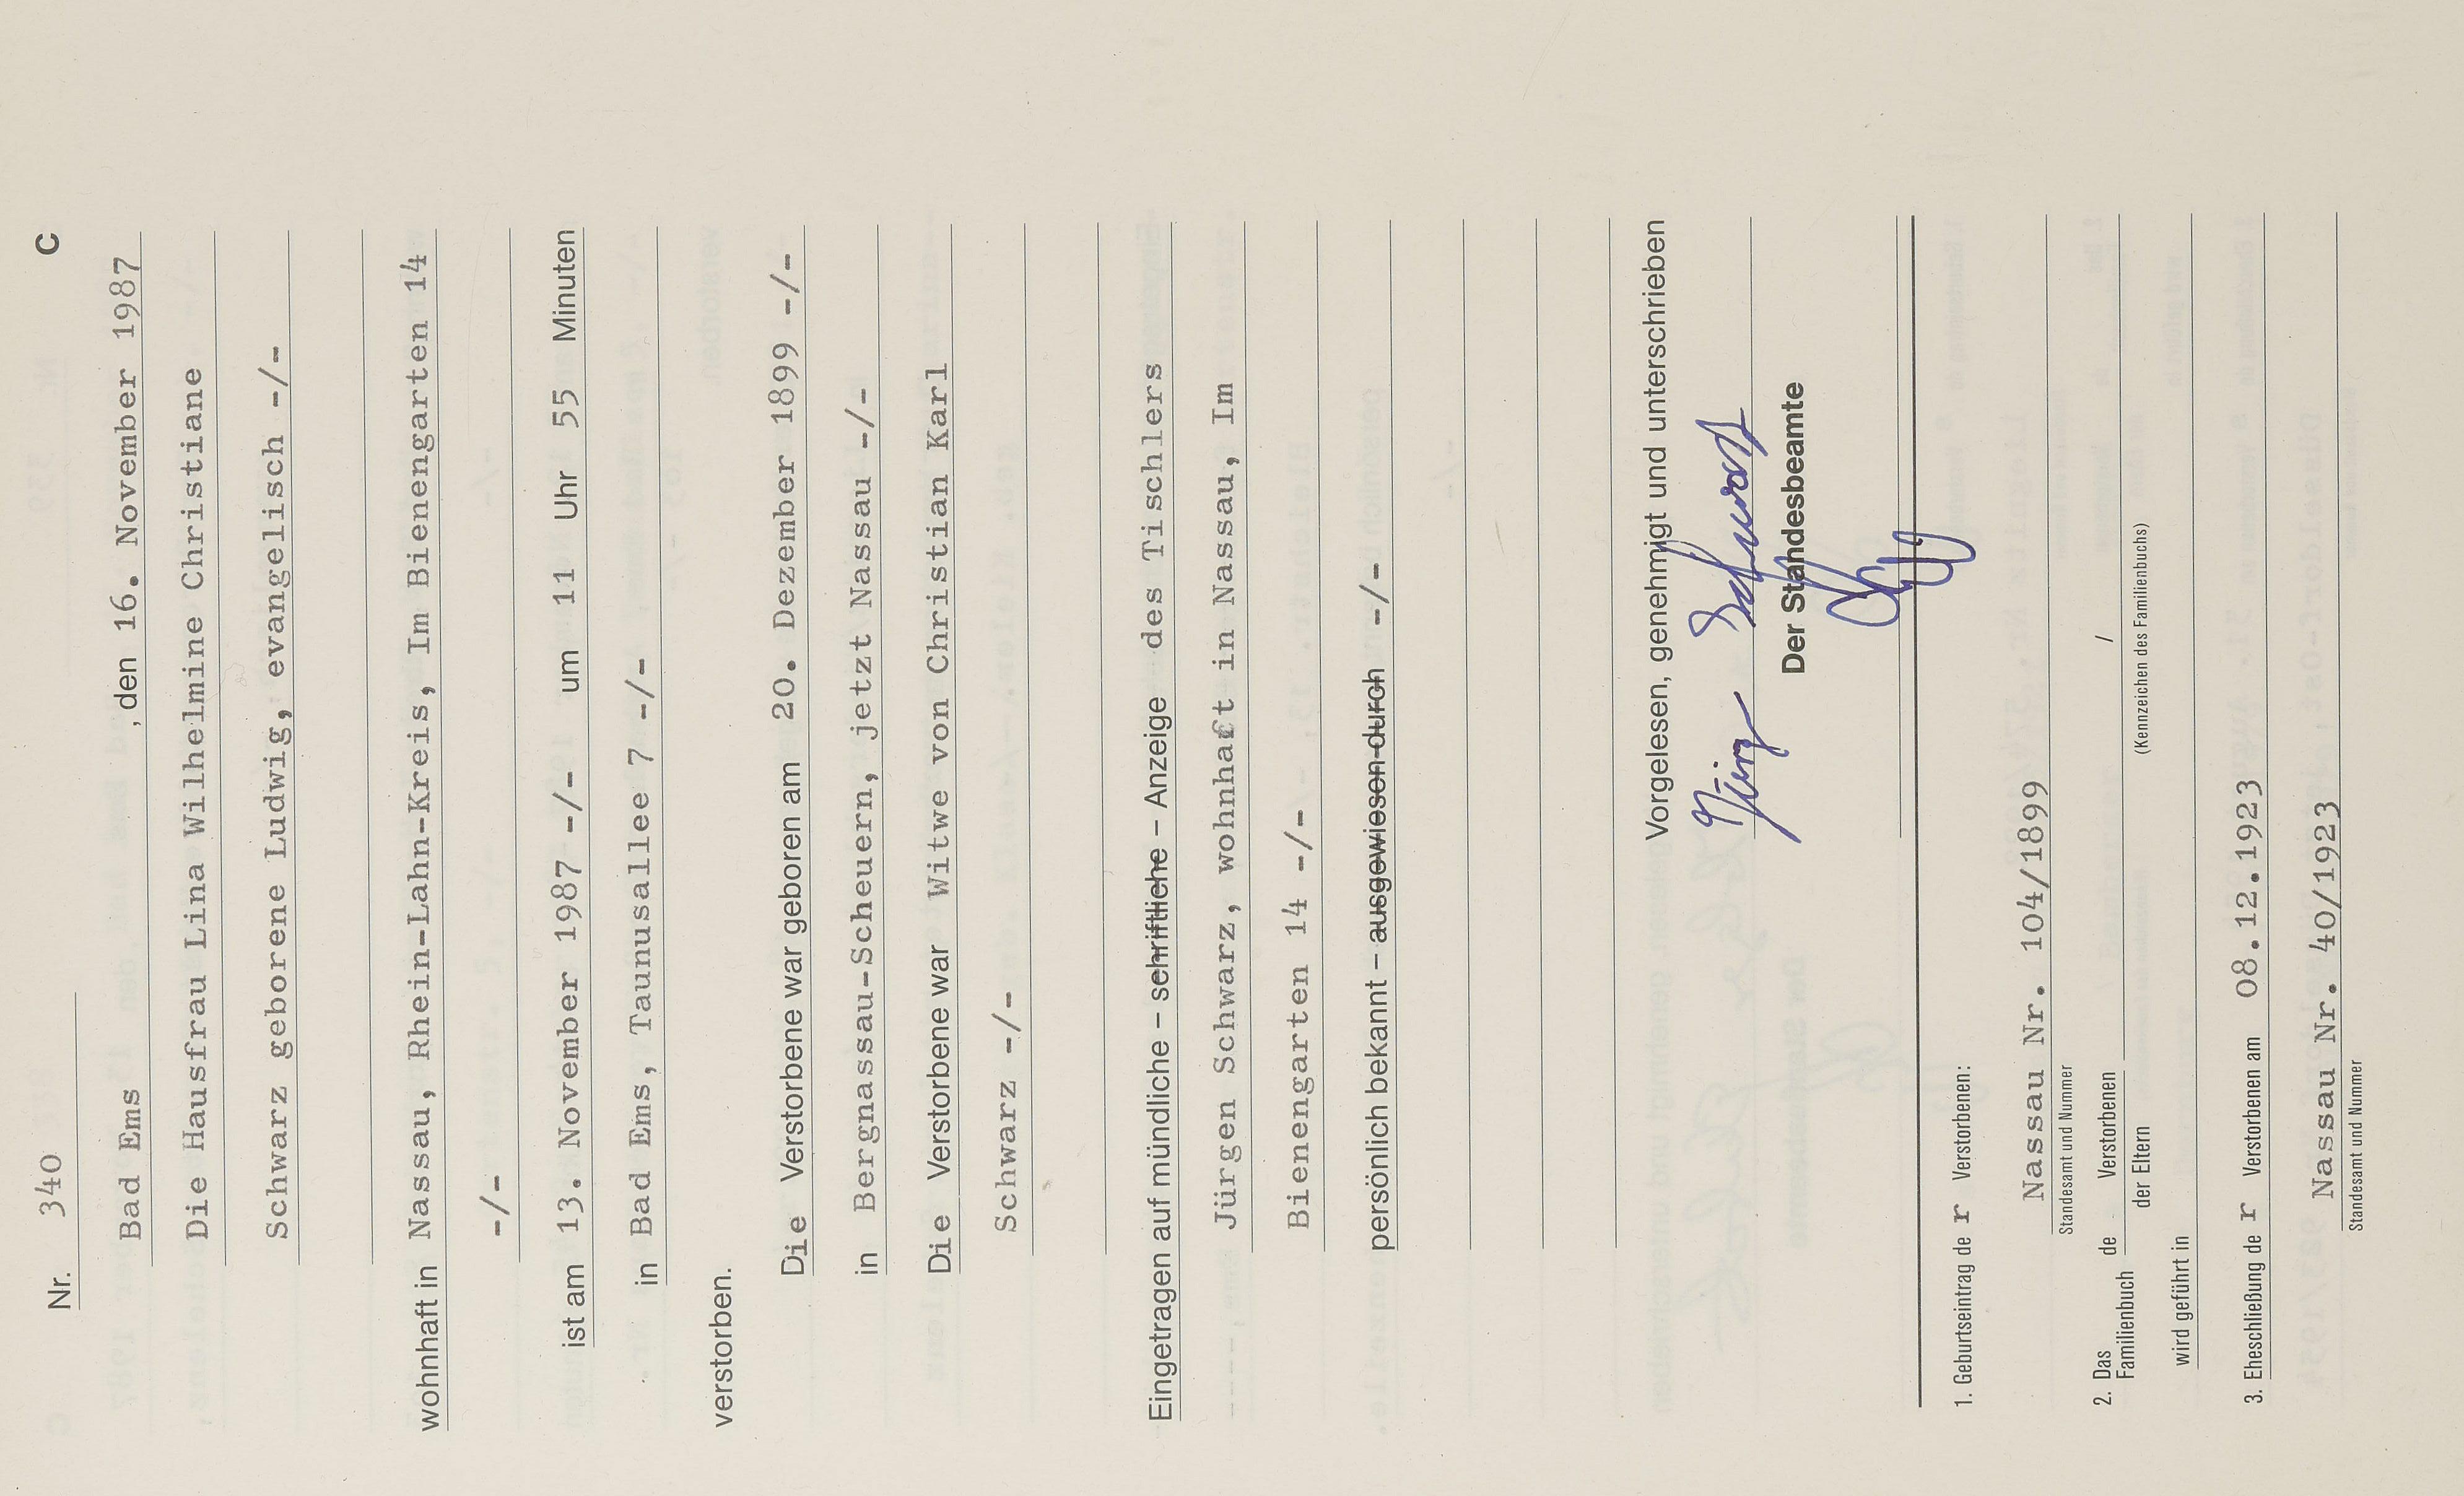 C
Nr. 340
Bad Ems , den 16. November 1987
Die Hausfrau Lina Wilhelmine Christiane
Schwarz geborene Ludwig, evangelisch -/-
wohnhaft in Nassau, Rhein-Lahn-Kreis, Im Bienengarten 14
-/-
ist am 13. November 1987 -/- um 11 Uhr 55 Minuten
in Bad Ems, Taunusallee 7 -/-
verstorben.
Die Verstorbene war geboren am 20. Dezember 1899 -/-
in Bergnassau-Scheuern, jetzt Nassau -/-
Die Verstorbene war Witwe von Christian Karl
Schwarz -/-
Eingetragen auf mündliche – schriftliche – Anzeige des Tischlers
Jürgen Schwarz, wohnhaft in Nassau, Im
Bienengarten 14 -/-
persönlich bekannt – ausgewiesen durch -/-
Vorgelesen, genehmigt und unterschrieben
Jürgen Schwarz
Der Standesbeamte
1. Geburtseintrag de r Verstorbenen:
Nassau Nr. 104/1899
Standesamt und Nummer
2. Das Familienbuch de Verstorbenen /
der Eltern (Kennzeichen des Familienbuchs)
wird geführt in
3. Eheschließung de r Verstorbenen am 08.12.1923
Nassau Nr. 40/1923
Standesamt und Nummer